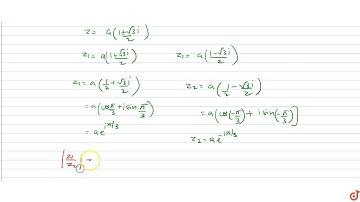 z = a(1+√3i/2)
z₁ = a(1+√3i/2) z₂ = a(1-√3i/2)
z₁ = a(1/2 + √3i/2) z₂ = a(1/2 - √3i/2)
= a(cos π/3 + i sin π/3) = a(cos(-π/3) + i sin(-π/3)]
= a e^(iπ/3) z₂ = a e^(-iπ/3)